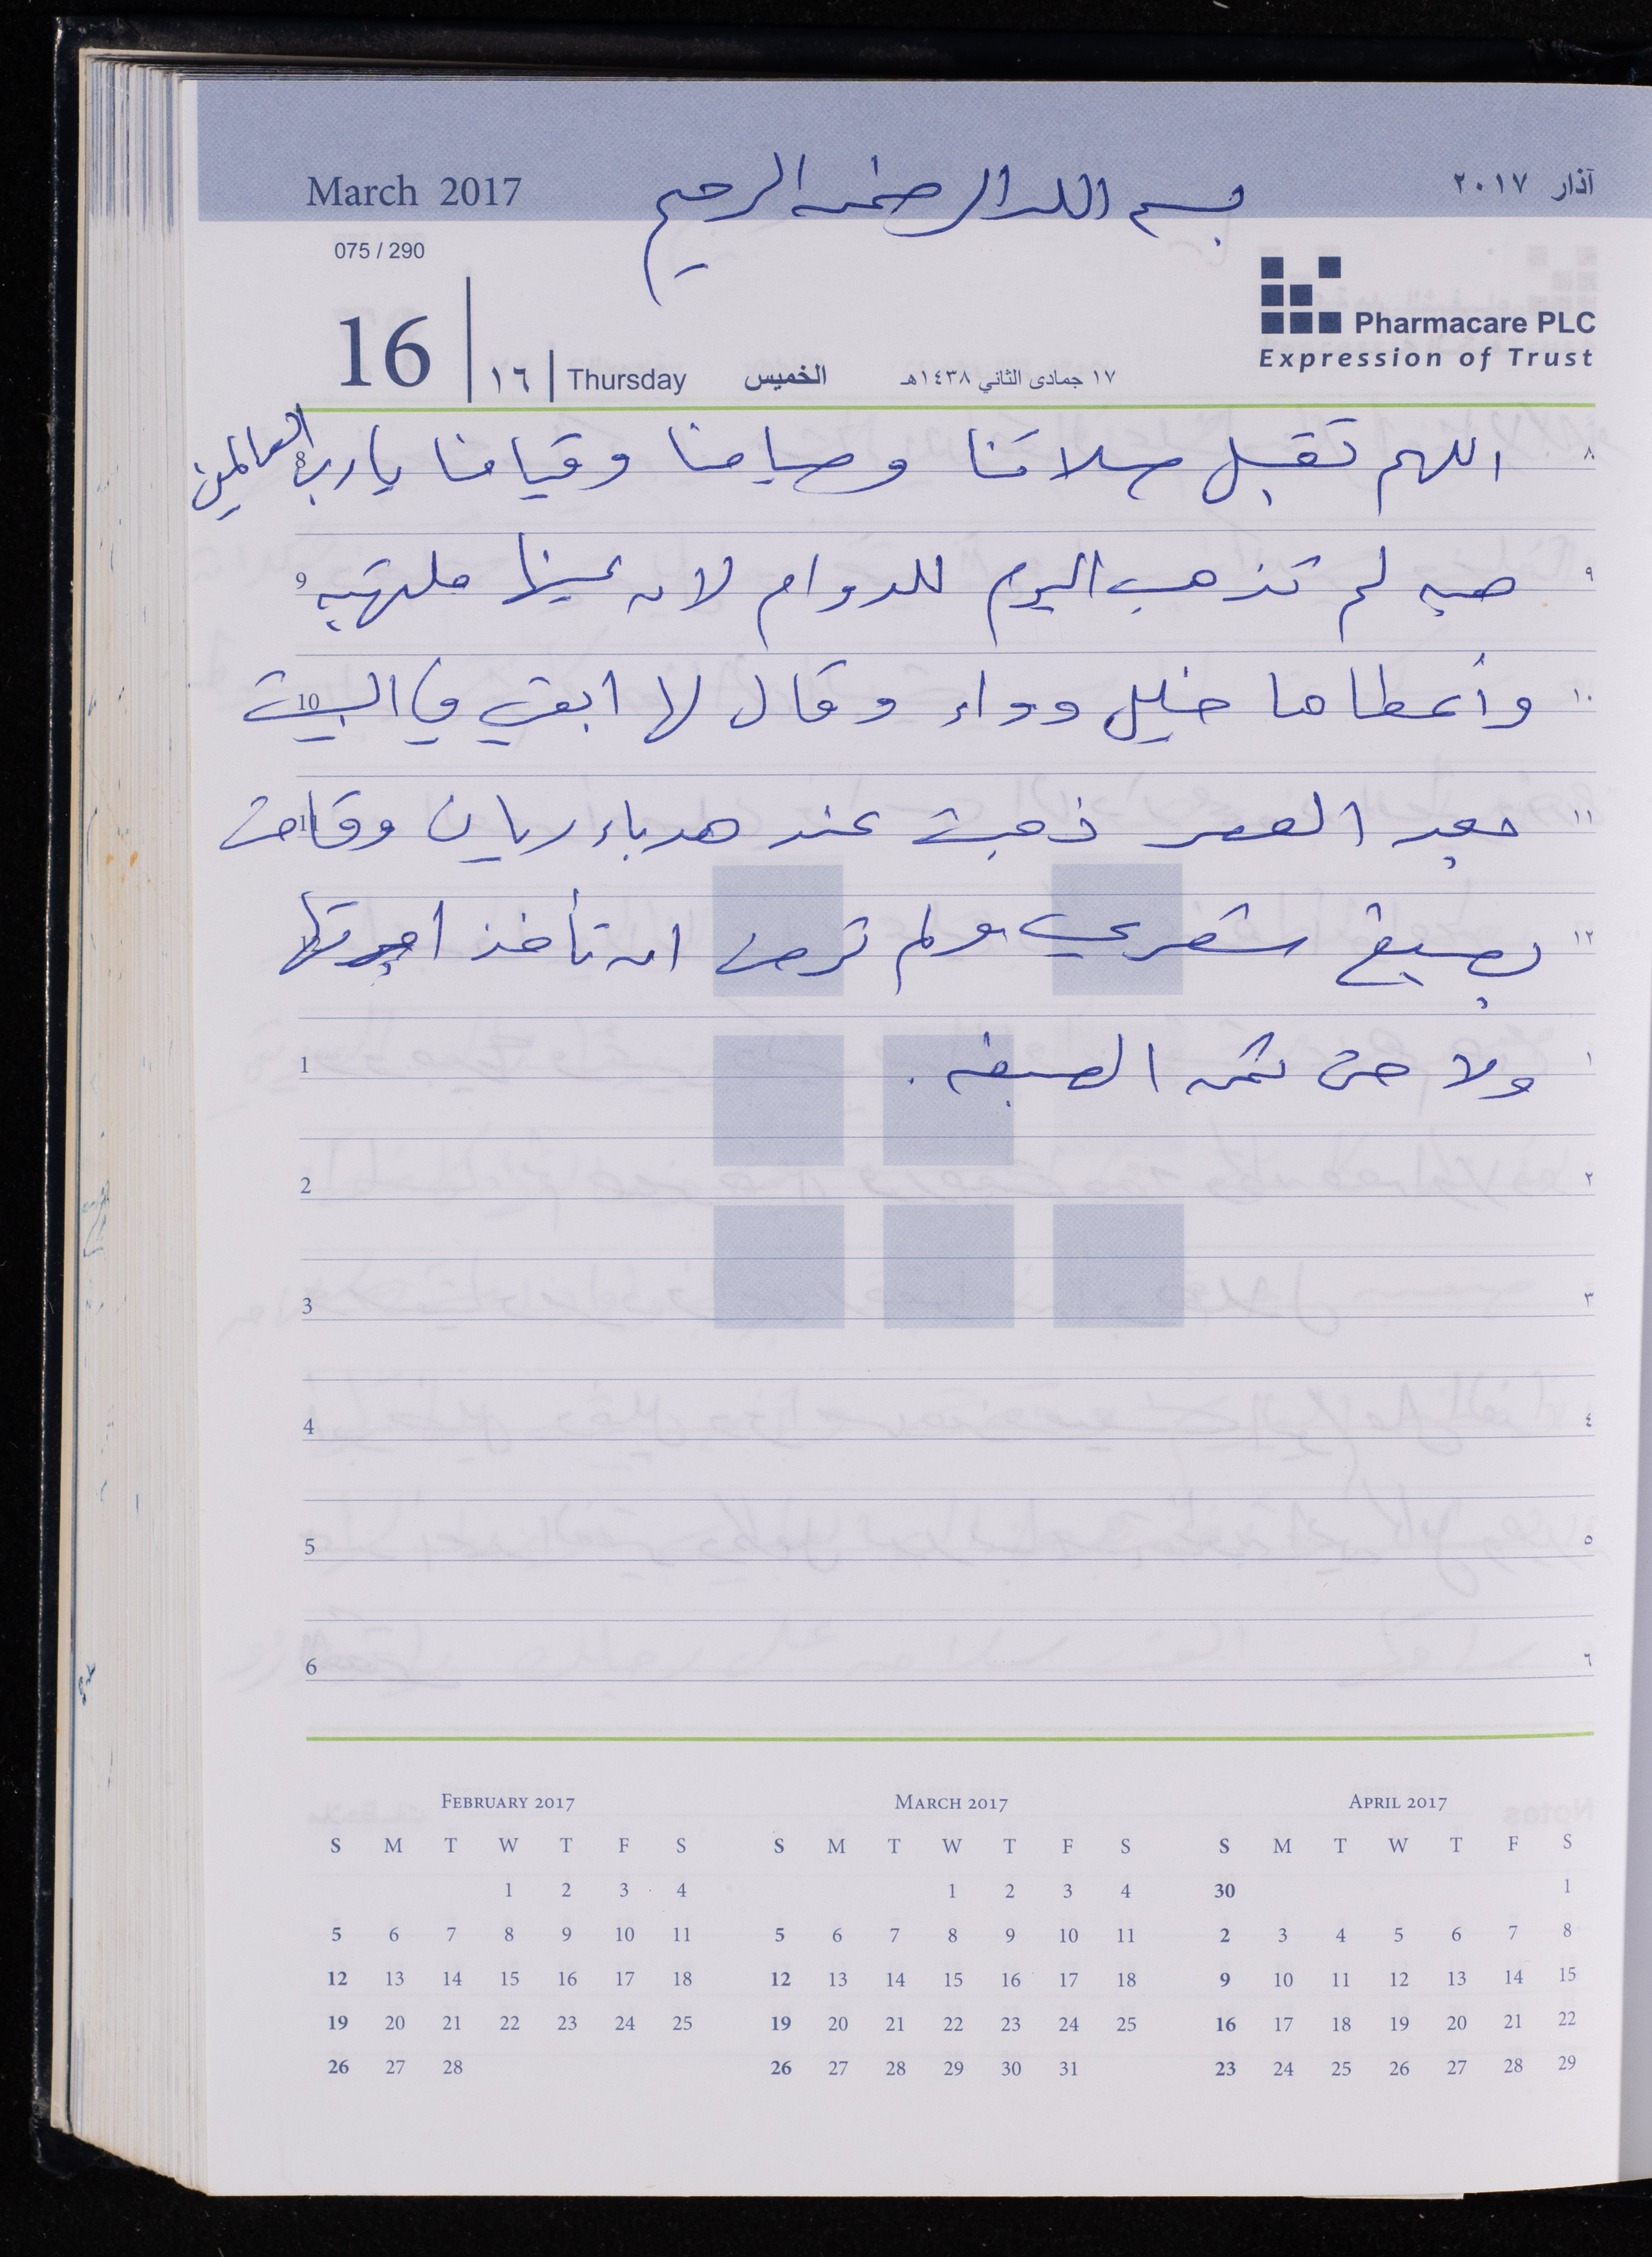 March 2017 بسم الله الرحمن الرحيم آذار ٢٠١٧
075 / 290
Pharmacare PLC
Expression of Trust
16 ١٦ Thursday الخميس ١٧ جمادى الثاني ١٤٣٨هـ
٨ اللهم تقبل صلاتنا وصيامنا وقيامنا يا رب العالمين 8
٩ هبه لم تذهب اليوم للدوام لان عينها ملتهبه 9
١٠ وأعطاها خليل دواء وقال لها ابقي في البيت 10
١١ بعد العصر ذهبت عند هدباء ريان وقامت 11
١٢ بصبغ شعري ولم ترض ان تأخذ اجرتها
١ ولا حتى ثمن الصبغه . 1
٢ 2
٣ 3
٤ 4
٥ 5
٦ 6
February 2017
S M T W T F S
1 2 3 4
5 6 7 8 9 10 11
12 13 14 15 16 17 18
19 20 21 22 23 24 25
26 27 28
March 2017
S M T W T F S
1 2 3 4
5 6 7 8 9 10 11
12 13 14 15 16 17 18
19 20 21 22 23 24 25
26 27 28 29 30 31
April 2017
S M T W T F S
30 1
2 3 4 5 6 7 8
9 10 11 12 13 14 15
16 17 18 19 20 21 22
23 24 25 26 27 28 29